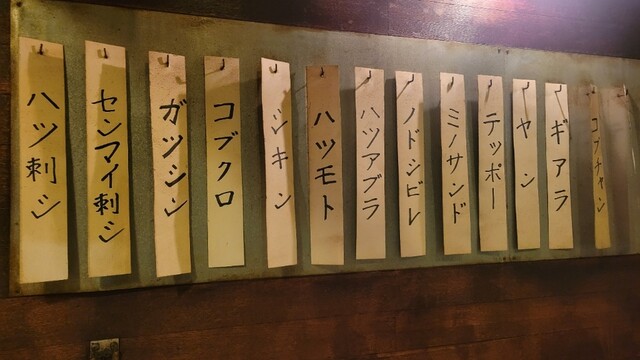 ハツ刺シ
センマイ刺シ
ガツシン
コブクロ
シキン
ハツモト
ハツアブラ
ノドシビレ
ミノサンド
テッポー
ヤン
ギアラ
コプチャン